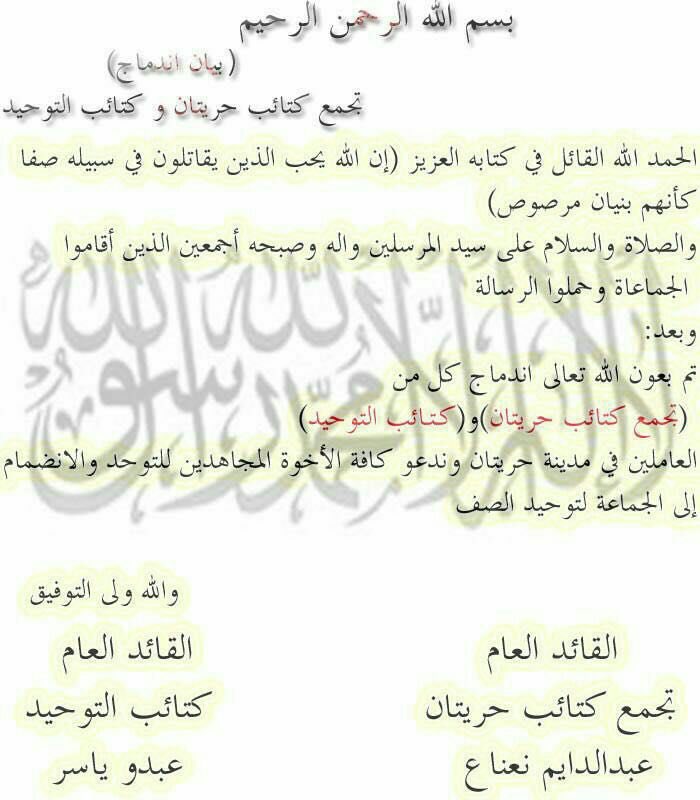 بسم الله الرحمن الرحيم
(بيان اندماج)
تجمع كتائب حريتان و كتائب التوحيد
الحمد الله القائل في كتابه العزيز (إن الله يحب الذين يقاتلون في سبيله صفا
كأنهم بنيان مرصوص)
والصلاة والسلام على سيد المرسلين واله وصبحه أجمعين الذين أقاموا
الجماعاة وحملوا الرسالة
وبعد:
تم بعون الله تعالى اندماج كل من
(تجمع كتائب حريتان)و(كتائب التوحيد)
العاملين في مدينة حريتان وندعو كافة الأخوة المجاهدين للتوحد والانضمام
إلى الجماعة لتوحيد الصف
والله ولى التوفيق
القائد العام
تجمع كتائب حريتان
عبدالدايم نعناع
القائد العام
كتائب التوحيد
عبدو ياسر
لا إله إلا الله محمد رسول الله